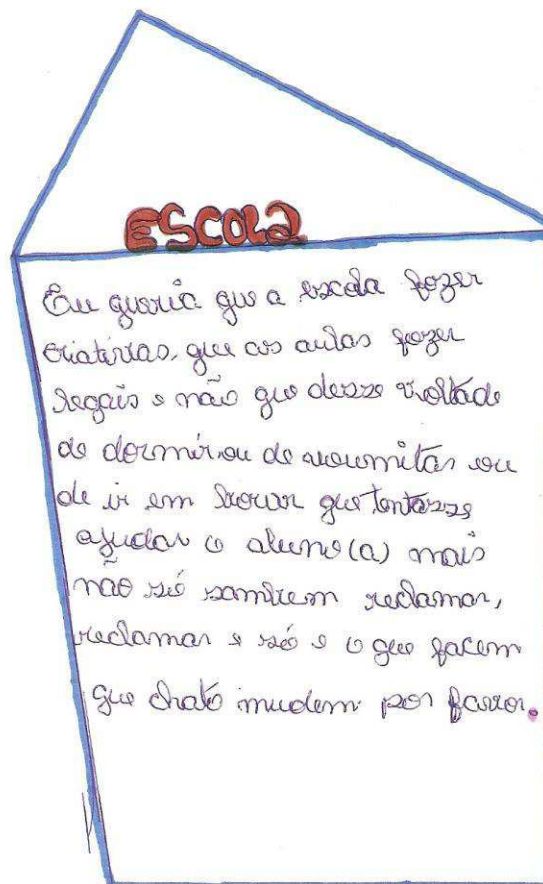 ESCOLA
Eu queria que a escola fozer
criativas, que as aulas fozer
legais e não que desse voltade
de dormir ou de voumitar ou
de ir em que tentasse
ajudar o aluno(a) mais
não só sambem reclamar,
reclamar e só e o que facem
que chato mudem por favor.